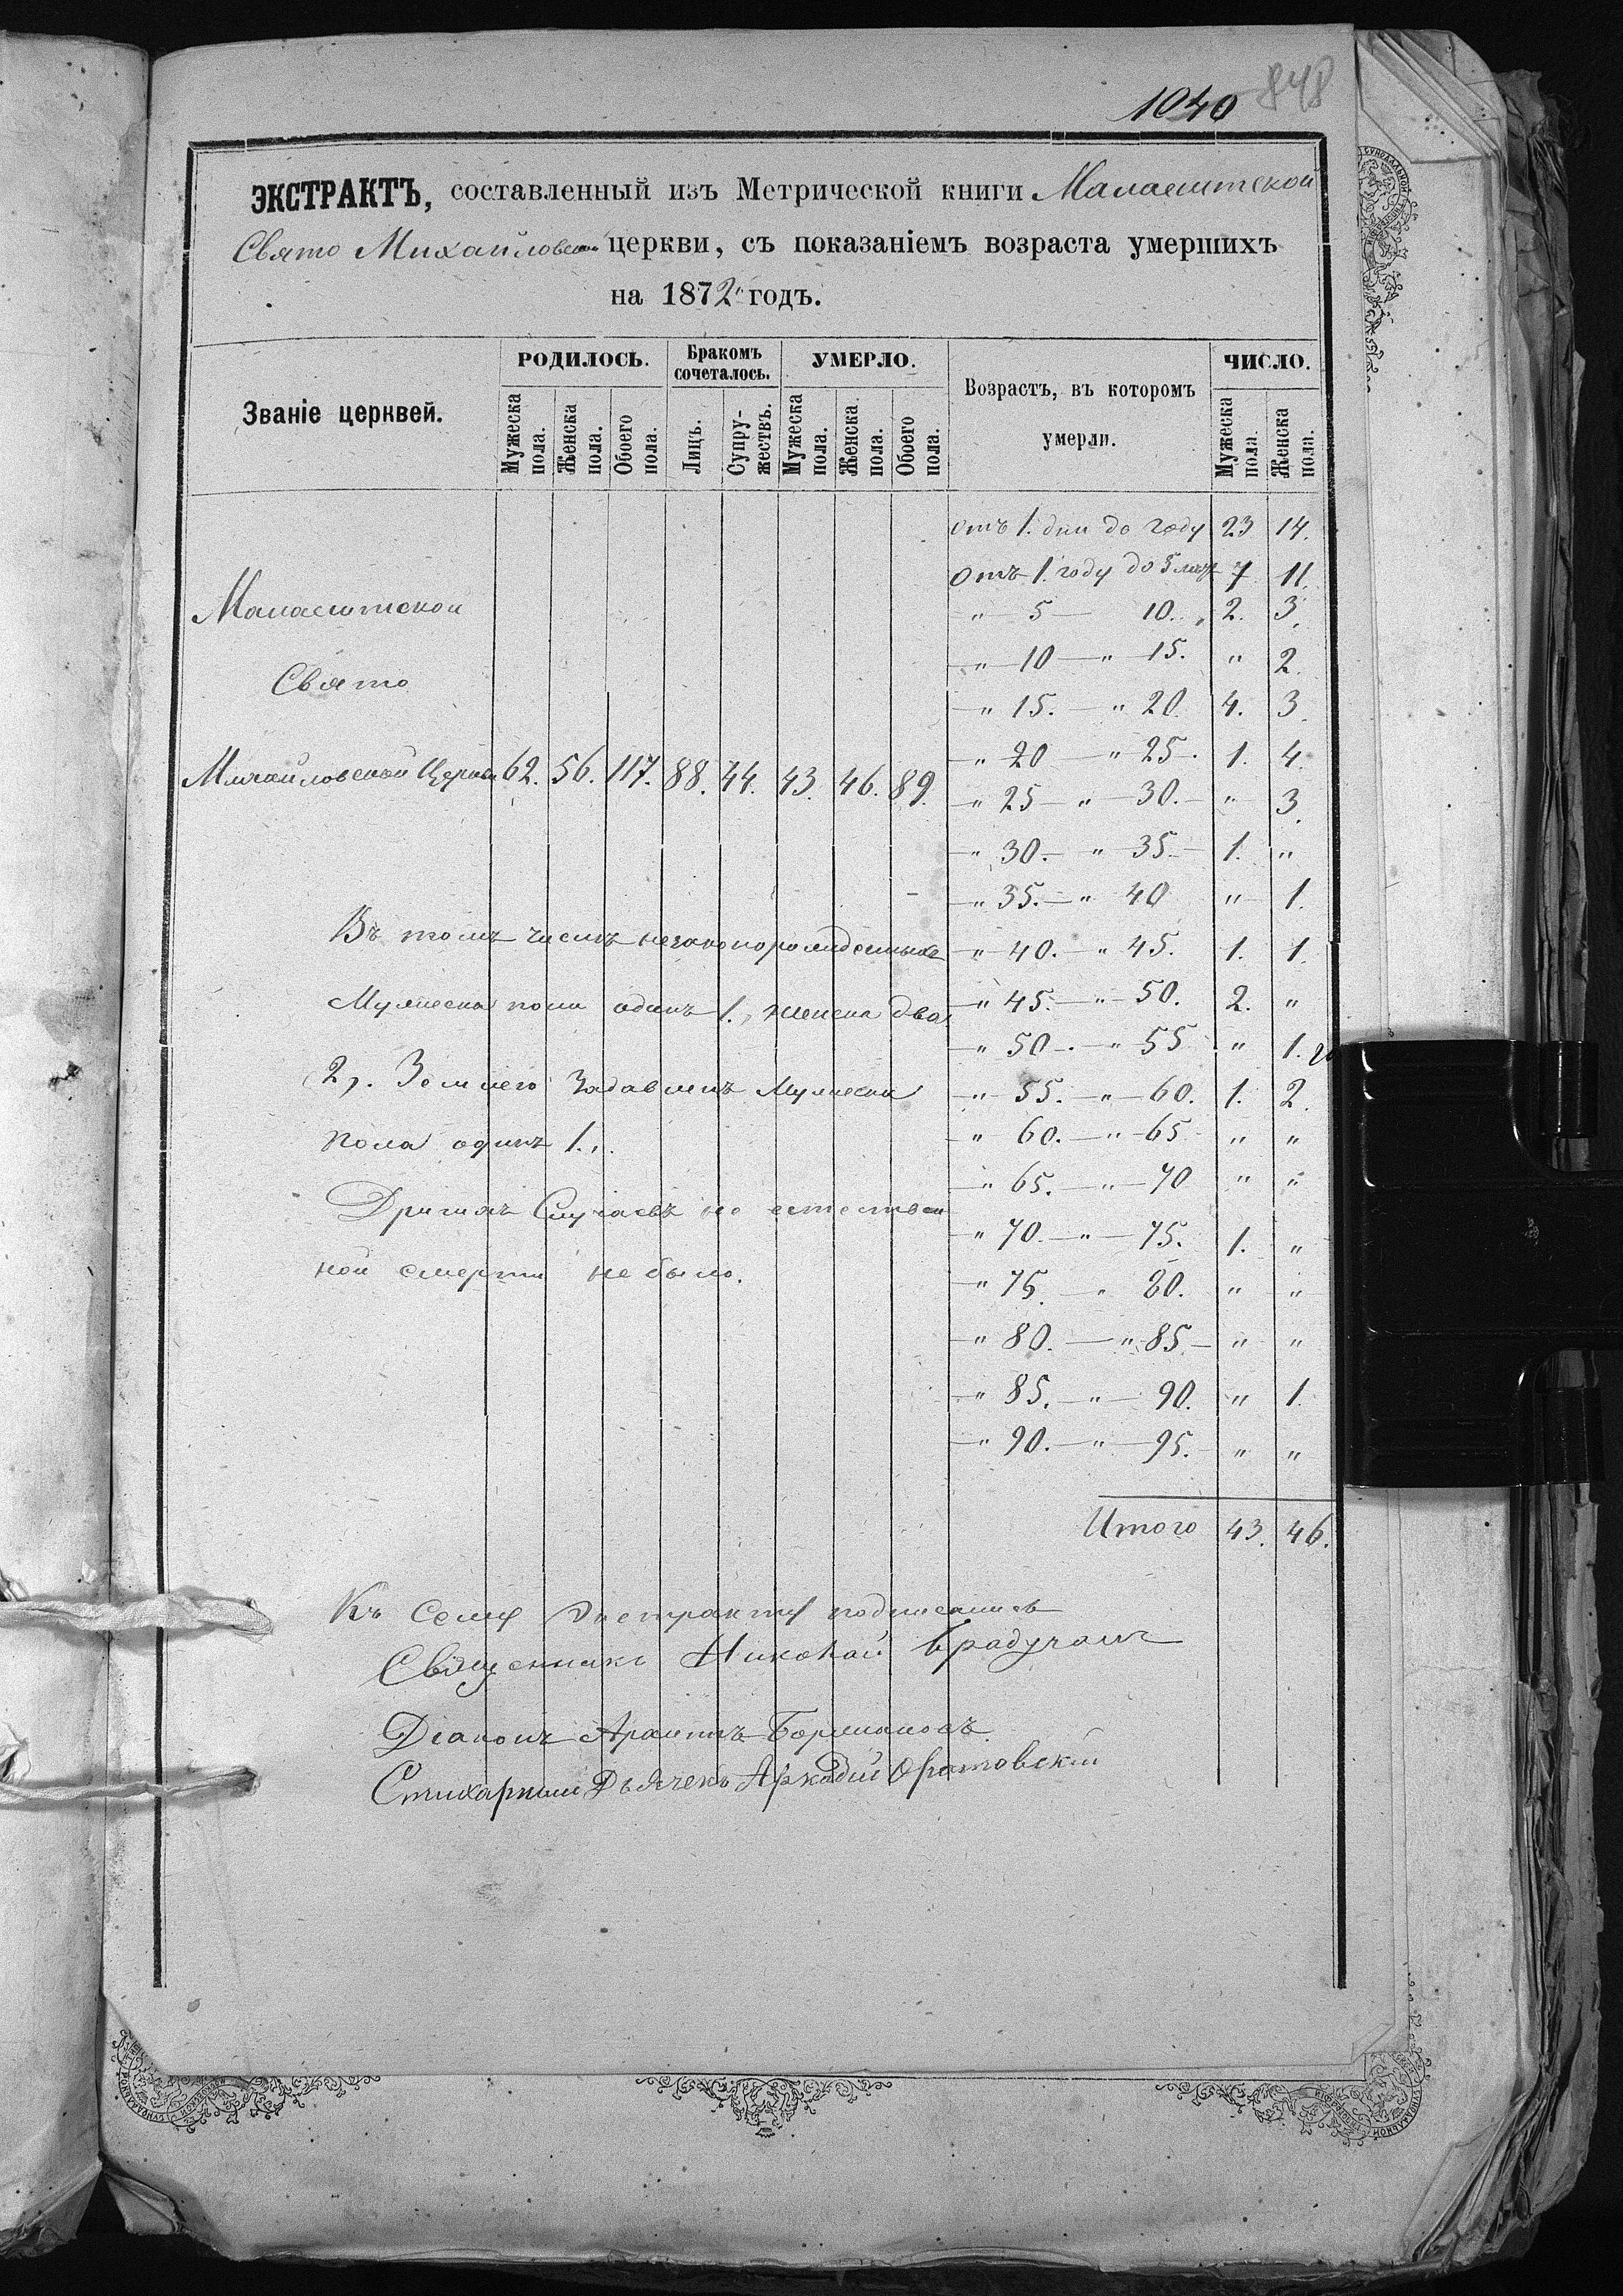 848
1040
ЭКСТРАКТЪ, составленный изъ Метрической книги Малаештской
Свято Михайловской церкви, съ показаніемъ возраста умершихъ
на 1872 годъ.
Званіе церквей.
РОДИЛОСЬ.
Бракомъ сочеталось.
УМЕРЛО.
Возрастъ, въ которомъ умерли.
ЧИСЛО.
Мужеска пола.
Женска пола.
Обоего пола.
Лицъ.
Супружествъ.
Мужеска пола.
Женска пола.
Обоего пола.
Мужеска пола.
Женска пола.
отъ 1. дни до году 23 14.
Отъ 1. году до 5 лѣтъ 7 11.
Малаештской
" 5 — 10. 2. 3.
— " 10 — " 15. " 2.
Свято
— " 15. — " 20. 4. 3.
Михайловской Церкви 62. 56. 117. 88. 44. 43. 46. 89.
— " 20 — " 25. 1. 4.
— " 25 — " — 30. — " 3.
— " 30. — " 35. — 1. "
— " 35. — " 40 " 1.
Въ томъ числѣ незаконорожденныхъ
— " 40. — " 45. 1. 1.
Мужеска пола одинъ 1., женска два
— " 45. — " — 50. 2. "
— " 50 — . — " 55 " 1.
2, . Землею Задавленъ Мужеска
— " 55. — " — 60. 1. 2.
пола одинъ 1. ,.
— " 60. — " — 65 " "
— " 65. — " — 70 " "
Другихъ Случаевъ не естествен
— " 70. — " — 75. 1. "
ной смерти не было.
— " 75. — " 80. " "
— " 80. — " 85. — " "
— " 85. — " — 90. " 1.
— " 90. — " — 95. — " "
Итого 43. 46.
Къ сему Экстракту подписались
Священникъ Николай
Діаконъ
Стихарный Дьячекъ Аркадій Оратовскій